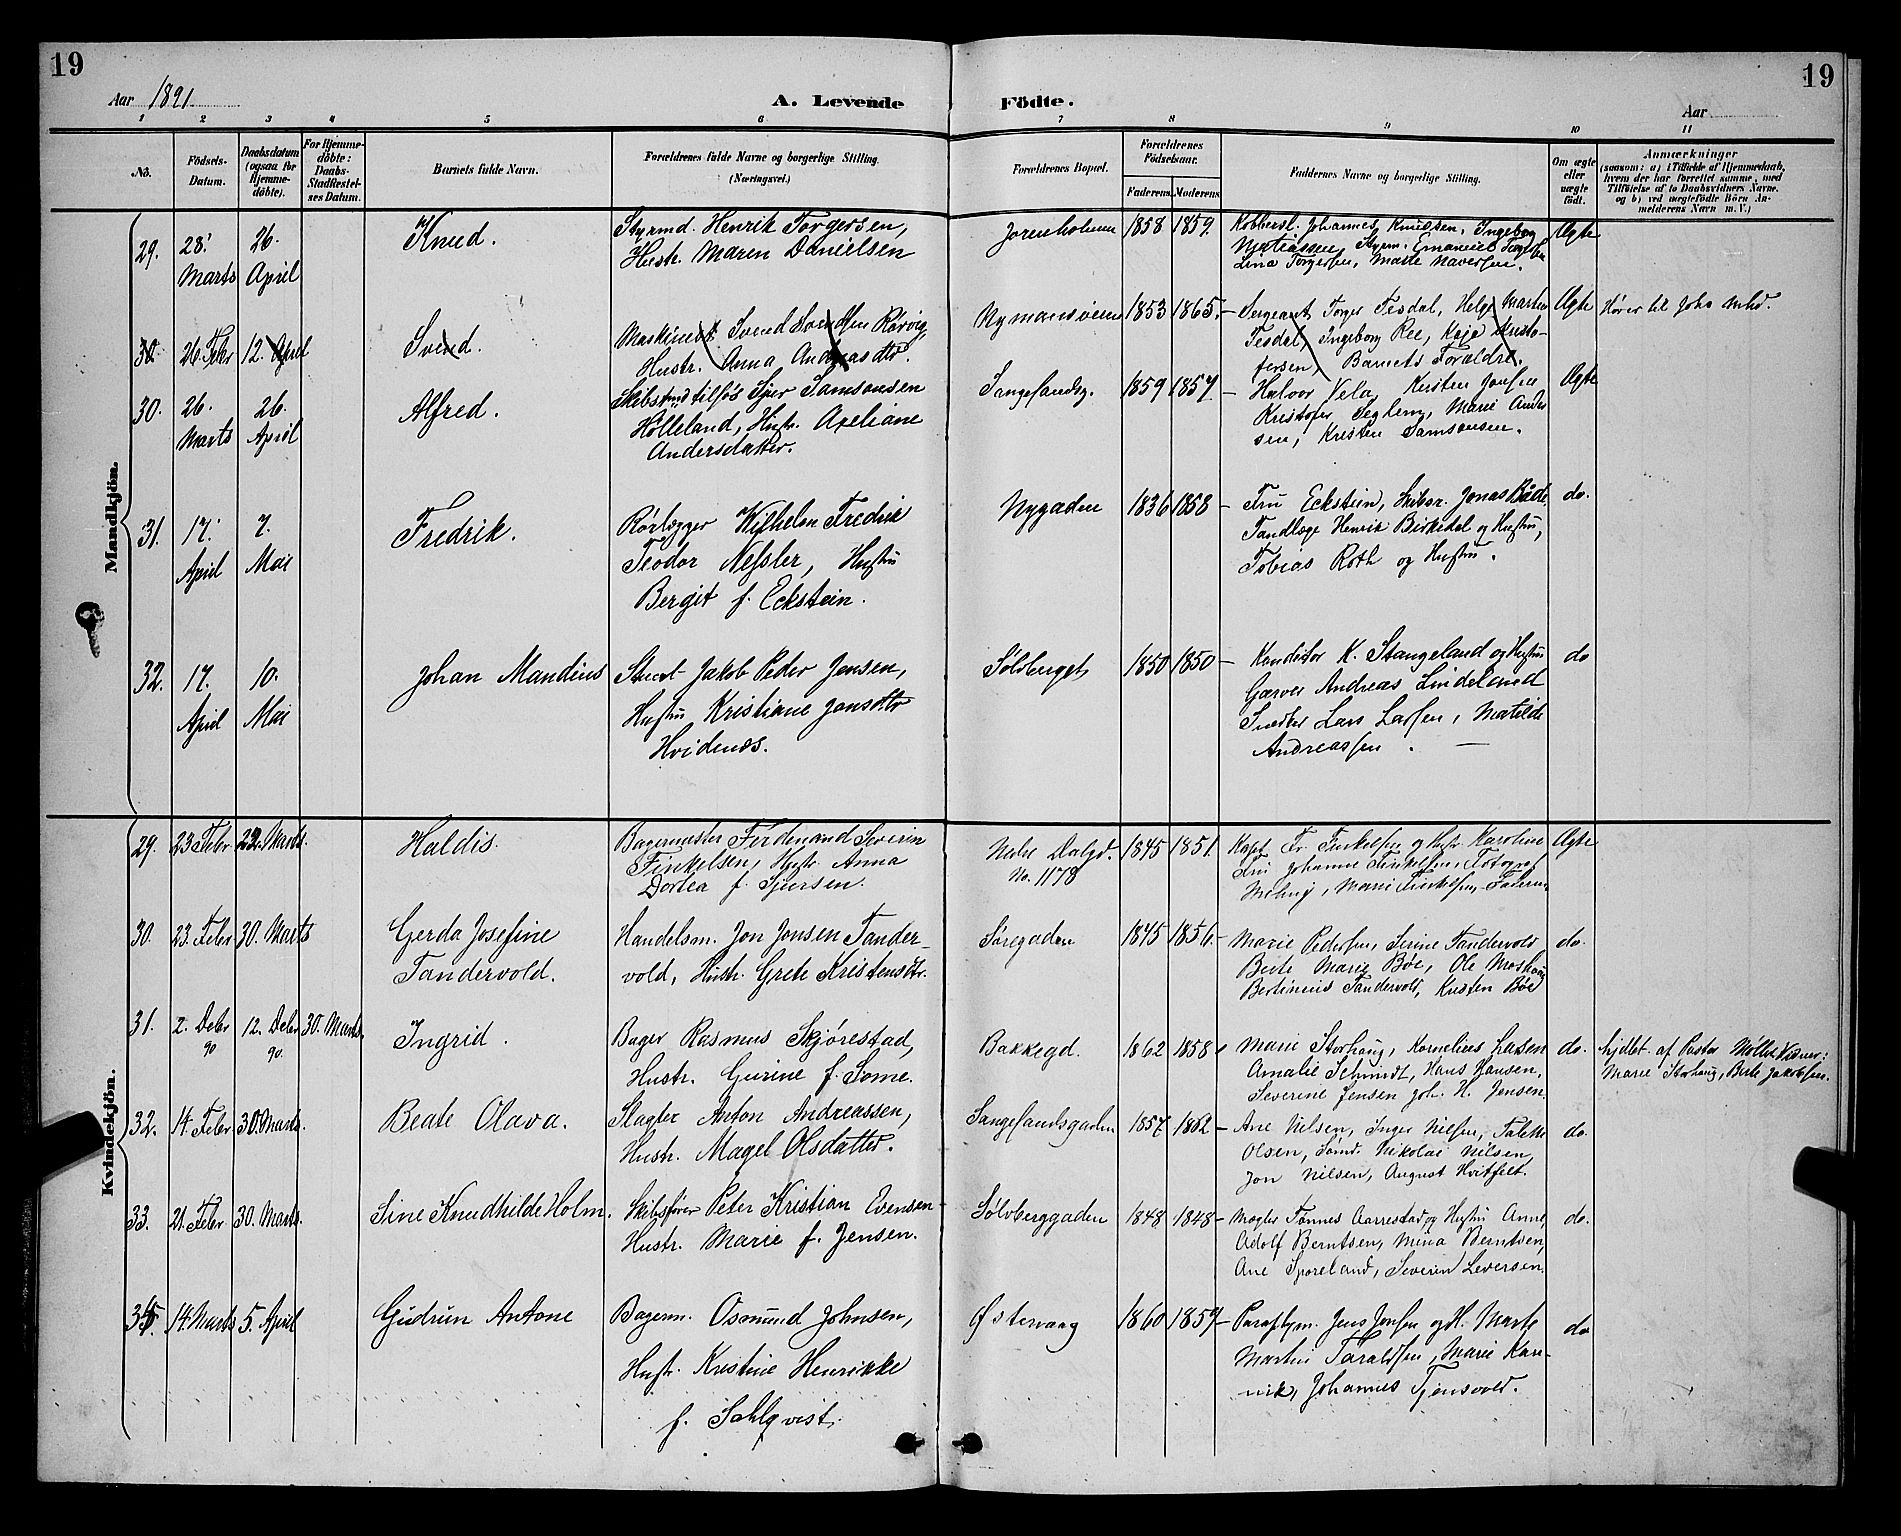 19
19
Aar 1891.
A. Levende Födte.
Aar
1 2 3 4 5 6 7 8 9 10 11
No.
Födsels-Datum.
Daabsdatum (ogsaa for Hjemme-döbte).
For Hjemme-döbte: Daabs-Stadfæstel-ses Datum.
Barnets fulde Navn.
Forældrenes fulde Navne og borgerlige Stilling.
(Næringsvei.)
Forældrenes Bopæl.
Forældrenes Födselsaar.
Faderens. Moderens.
Faddernes Navne og borgerlige Stilling.
Om ægte eller uægte födt.
Anmærkninger
(saasom: a) i Tilfælde af Hjemmedaab, hvem der har forrettet samme, med Tilföielse af to Daabsvidners Navne. og b) ved uægtefödte Börn An-melderens Navn m. V.)
Mandkjön.
29. 28' Marts 26. April Knud. Styrmd. Henrik Torgersen, Hustr. Maren Danielsen 1858 1859. Kobbersl. Johannes Knudsen, Ingeborg
Lina Torgersen, Ægte
30. 26. Febr 12. April Svend. Maskinist Svend Svendsen Rörvig, Hustr. Anna Andreasdtr. Nymansveien 1853 1865. – Sergeant Torger Tesdal, Helge Martin
Tesdal, Ingeborg Ree, Kaja Kristo-
fersen, Barnets Forældre. Ægte Hører til Johs mhd.
30. 26. Marts 26. April Alfred. Samsonsen
Hölleland, Hustr. Axeliane
Andersdatter. 1859 1857 – Halvor Vela, Kirsten Jonsen
Kristofer Seglem, Marie Ander
sen, Kristen Samsonsen. Ægte
31. 17. April 7. Mai Fredrik. Rörlægger Wilhelm Fredrik
Teodor Nessler, Hustru
Bergit f. Eckstein. Nygaden 1836 1858 – Fru Eckstein, Jonas
Tandlæge Henrik Birkedal og Hustru,
Tobias Roth og Hustru. do.
32. 17. April 10. Mai Johan Mandius Jakob Peder Jensen,
Hustru Kristiane Jonsdtr
Hvidenæs. Sölvberget 1850 1850 – Konditor K. Stangeland og Hustru
Garver Andreas Lindeland
Snedker Lars Larsen, Matilde
Andreassen. – do
Kvindekjön.
29. 23 Febr 22. Marts. Haldis. Bagermester Ferdinand Severin
Finkelsen, Hustr. Anna
Dortea f. Sjursen. Nedre Dalgd.
No. 1178 1845 1851. Kapt. Fr. Finkelsen og Hustr Karoline
Fru Johanne Finkelsen, Fotograf
Marie Finkelsen Ægte
30. 23. Febr 30. Marts Gerda Josefine
Tandervold. Handelsm. Jon Jonsen Tander-
vold, Hustr. Grete Kristensdtr. Söregaden 1845 1856. – Marie Pedersen, Serine Tandervold
Berte Marie Böe, Ole
Bertinius Tandervold, Kristen Böe do.
31. 2. Debr 90 12. Debr 90. 30. Marts. Ingrid. Bager Rasmus Skjörestad,
Hustr. Gurine f. Some. Bakkegd. 1862 1858 Marie Storhaug, Kornelius Larsen
Amalie Schmidt, Hans Hansen,
Severine Jensen H. Jensen do. hjdbt. af Pastor Möller Vidner:
Marie Storhaug, Berte Jakobsen.
32. 14 Febr 30. Marts. Beate Olava. Slagter Anton Andreassen,
Hustr. Magel Olsdatter. Langelandsgaden 1857 1862 – Ane Nilsen, Inger Nilsen, Talette
Olsen, Nikolai Nilsen,
Jon Nilsen, August Hvitfelt. do.
33. 21. Febr 30. Marts. Sine Knudhilde Holm. Skibsförer Peter Kristian Evensen
Hustr. Marie f. Jensen. Sölvberggaden 1848 1848 – Mægler Tönnes Aarrestad og Hustru Anne,
Adolf Berntsen, Mina Berntsen,
Ane Sporeland, Severin Seversen. do.
34. 14. Marts 5. April Gudrun Antone Bagerm. Osmund Johnsen,
Hustr. Kristine Henrikke
f. Sahlqvist. Østervaag 1860 1859 – Jens Jensen og H. Marte
Martin Taraldsen, Marie Kar-
vik, Johannes Tjensvold. do